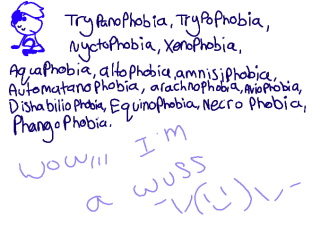 Trypanophobia, Trypophobia,
Nyctophobia, Xenophobia,
Aquaphobia, altophobia, amnisiphobia,
Automatanophobia, arachnophobia, Aviophobia,
Dishabiliophobia, Equinophobia, Necrophobia,
Phangophobia.
wow,,, I'm
a wuss
¯\_(ツ)_/¯